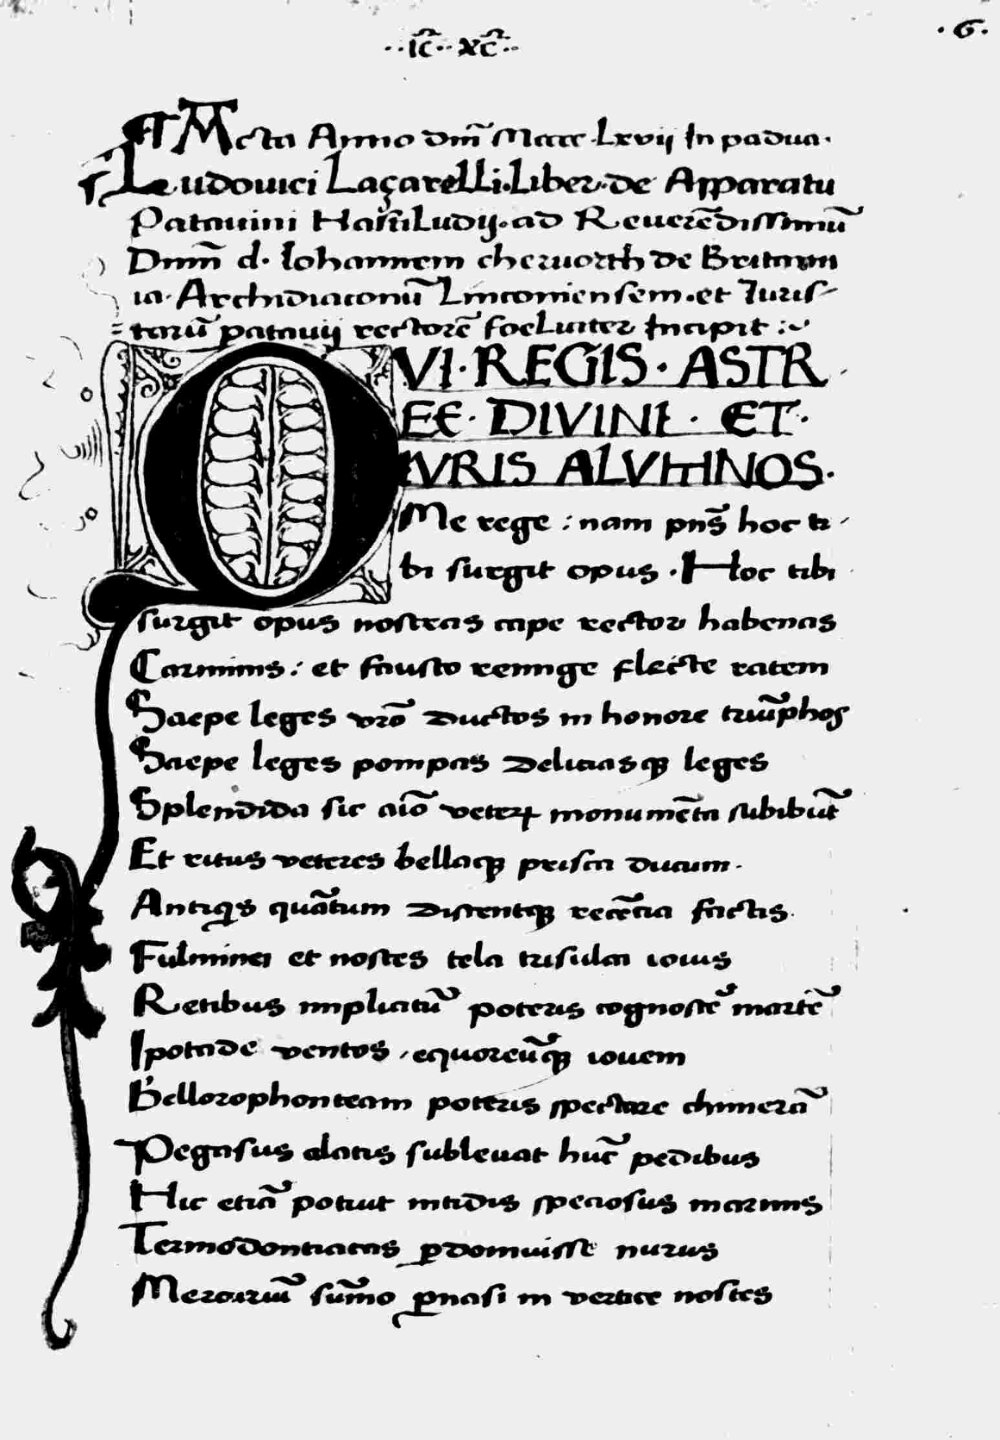 ·ic̄· xc̄·
·6·
Acta Anno dm̄ Mcccc Lxvij In padua·
Ludouici Laçarelli·Liber·de Apparatu
Patauini Hastiludij·ad Reuerēdissimū
Dnm̄ d· Iohannem cheruorth de Britann
ia· Archidiaconū Linconiensem·et Iuris-
tarū patauij rectorē foeLiciter Incipit :~
QVI·REGIS·ASTR
EE·DIVINI·ET·
IVRIS ALVMNOS·
Me rege : nam pn̄s hoc ti-
bi surgit opus ·Hoc tibi
surgit opus nostras cape rector habenas
Carminis: et fausto remige flecte ratem
Saepe leges vrō ductos in honore triūphos
Saepe leges pompas Deliciasqꝫ leges
Splendida sic aīo veterꝝ monumēta subibūt
Et ritus veteres bellaqꝫ prisca ducum·
Antiqis quātum Distentqꝫ recētia factis·
Fulminei et nosces tela trisulca iouis
Retibus implicitū poteris cognoscē martē
Ipotade ventos ·equoreūqꝫ iouem
Bellorophonteam poteris spectare chimerā
Pegasus alatis subleuat hūc pedibus
Hic etiā potuit nitidis speciosus in armis
Termodontiacas ꝑdomuisse nurus
Mercuriū sūmo ꝑnasi in vertice nosces